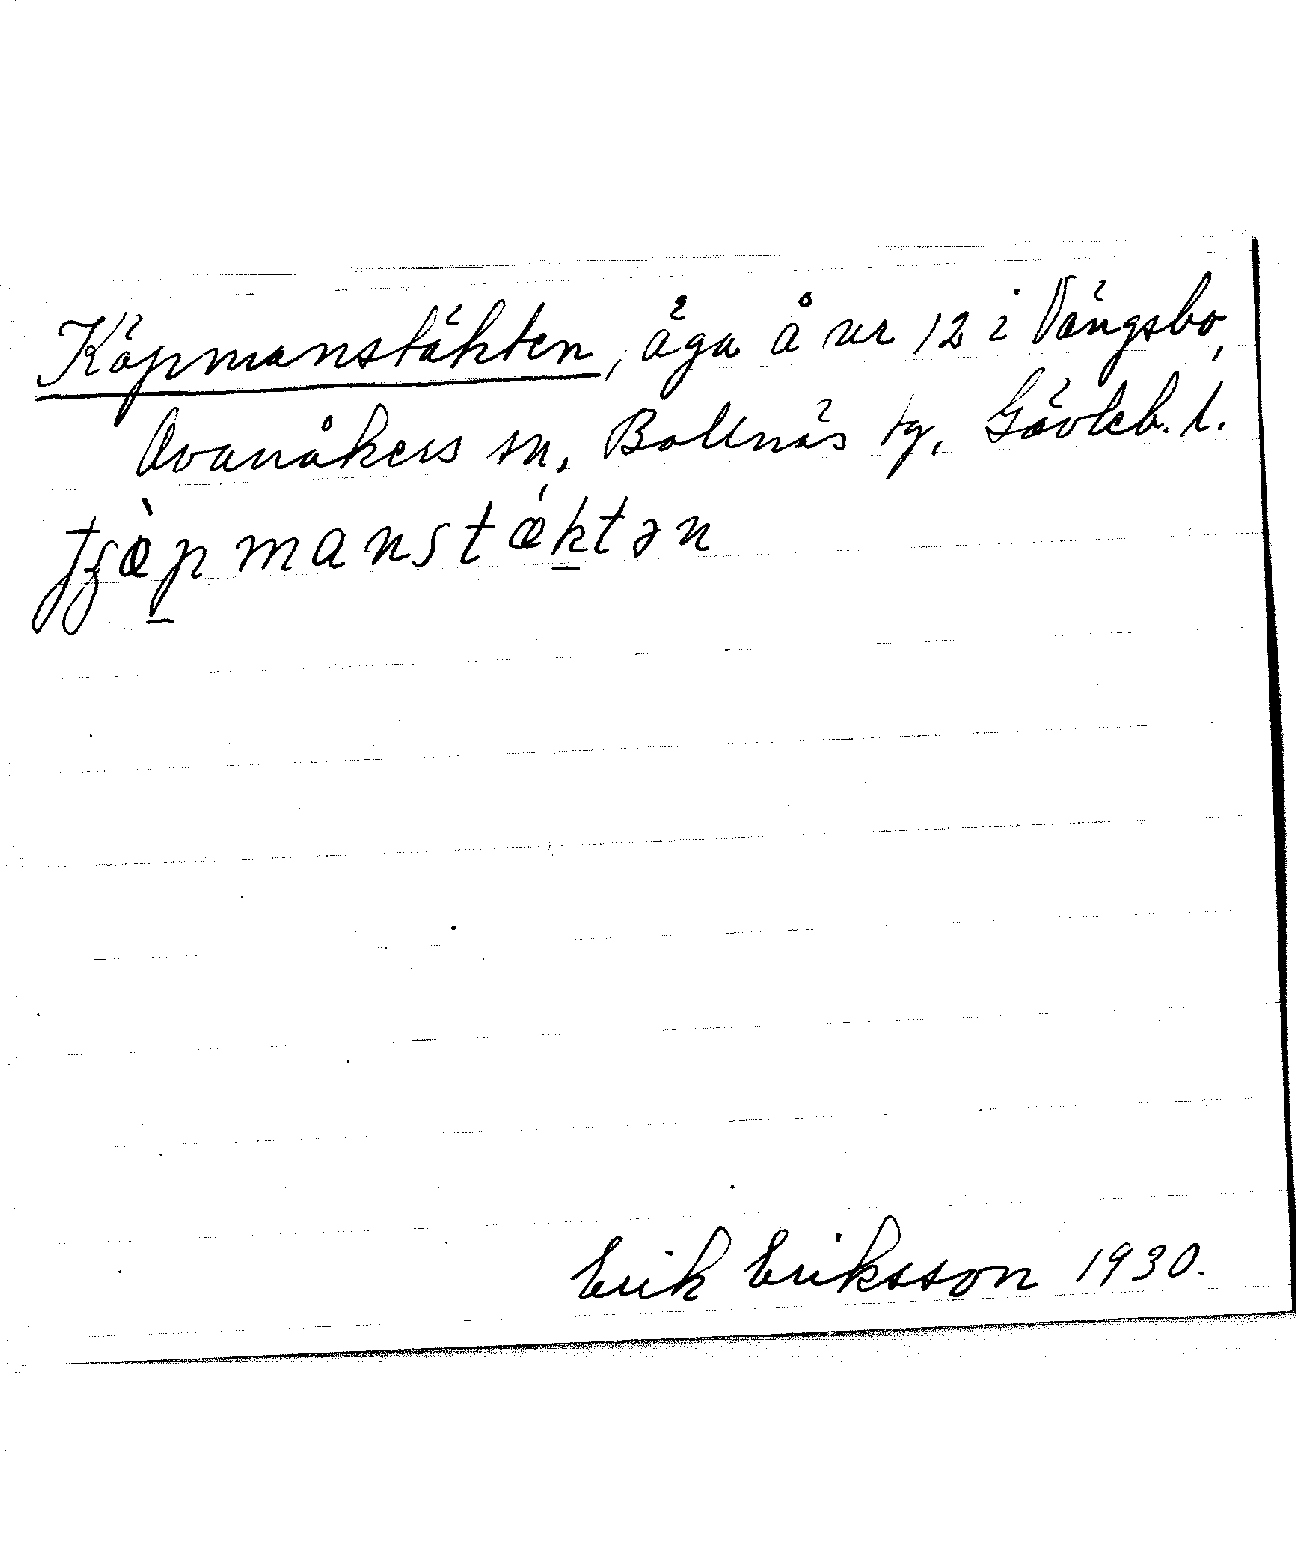 Käpmanstäkten, äga å nr 12 i Vängsbo,
Ovanåkers sn, Bollnäs tg, Gävleb. l.
tʃæ̀pmanstǽktən
Erik Eriksson 1930.